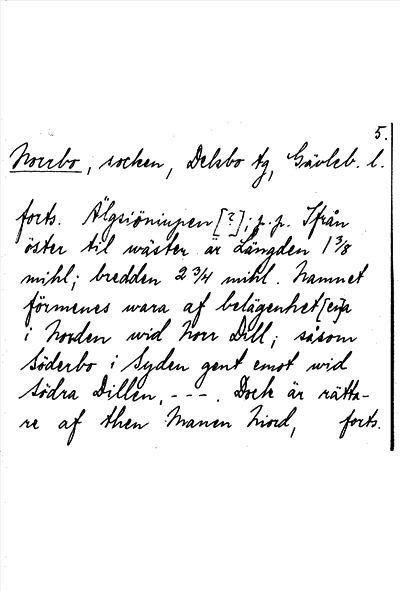 5.
Norrbo, socken, Delsbo tg, Gävleb. l.
forts. Älgsiöniupen [?]; p. p. Ifrån
öster til wäster är Längden 1 3/8
mihl; bredden 2 3/4 mihl. Namnet
förmenes wara af belägenhet[en]a
i Norden wid Norr Dill; såsom
Söderbo i Syden gent emot wid
Södra Dillen. - - - . Dock är rätta-
re af then Manen Niord, forts.